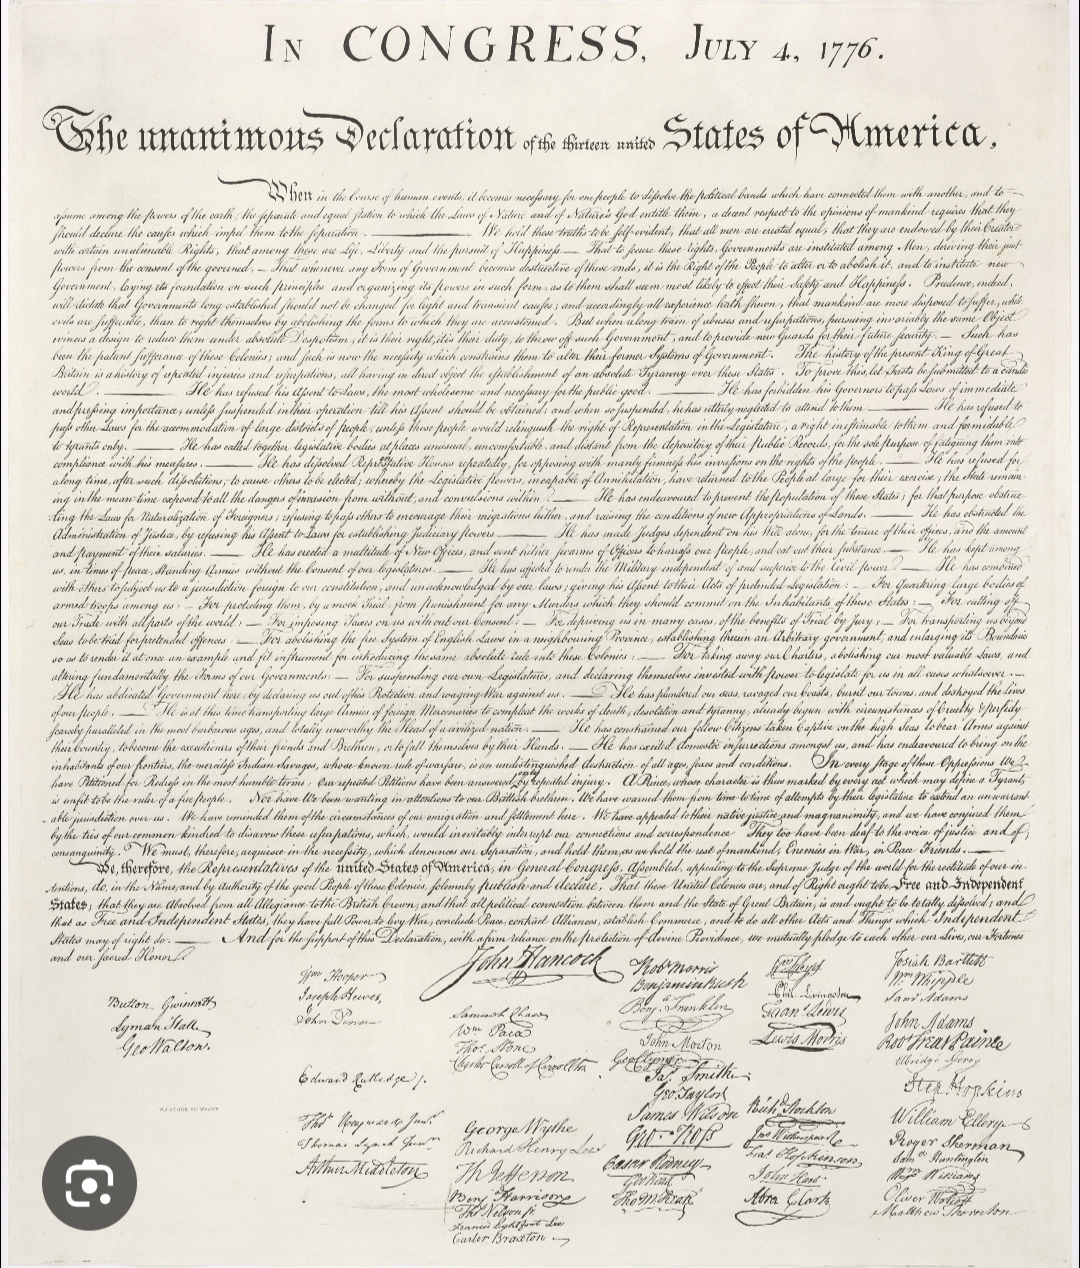 In CONGRESS, July 4, 1776.
The unanimous Declaration of the thirteen united States of America,
When in the Course of human events, it becomes necessary for one people to dissolve the political bands which have connected them with another, and to
assume among the powers of the earth, the separate and equal station to which the Laws of Nature and of Nature's God entitle them, a decent respect to the opinions of mankind requires that they
should declare the causes which impel them to the separation. We hold these truths to be self-evident, that all men are created equal, that they are endowed by their Creator
with certain unalienable Rights, that among these are Life, Liberty and the pursuit of Happiness.— That to secure these rights, Governments are instituted among Men, deriving their just
powers from the consent of the governed, — That whenever any Form of Government becomes destructive of these ends, it is the Right of the People to alter or to abolish it, and to institute new
Government, laying its foundation on such principles and organizing its powers in such form, as to them shall seem most likely to effect their Safety and Happiness. Prudence, indeed,
will dictate that Governments long established should not be changed for light and transient causes; and accordingly all experience hath shewn, that mankind are more disposed to suffer, while
evils are sufferable, than to right themselves by abolishing the forms to which they are accustomed. But when a long train of abuses and usurpations, pursuing invariably the same Object
evinces a design to reduce them under absolute Despotism, it is their right, it is their duty, to throw off such Government, and to provide new Guards for their future security. — Such has
been the patient sufferance of these Colonies; and such is now the necessity which constrains them to alter their former Systems of Government. The history of the present King of Great
Britain is a history of repeated injuries and usurpations, all having in direct object the establishment of an absolute Tyranny over these States. To prove this, let Facts be submitted to a candid
world. He has refused his Assent to Laws, the most wholesome and necessary for the public good. He has forbidden his Governors to pass Laws of immediate
and pressing importance, unless suspended in their operation till his Assent should be obtained; and when so suspended, he has utterly neglected to attend to them. He has refused to
pass other Laws for the accommodation of large districts of people, unless those people would relinquish the right of Representation in the Legislature, a right inestimable to them and formidable
to tyrants only. He has called together legislative bodies at places unusual, uncomfortable, and distant from the depository of their Public Records, for the sole purpose of fatiguing them into
compliance with his measures. He has dissolved Representative Houses repeatedly, for opposing with manly firmness his invasions on the rights of the people. He has refused for
a long time, after such dissolutions, to cause others to be elected; whereby the Legislative powers, incapable of Annihilation, have returned to the People at large for their exercise; the State remain
ing in the mean time exposed to all the dangers of invasion from without, and convulsions within. He has endeavoured to prevent the population of these States; for that purpose obstruc-
ting the Laws for Naturalization of Foreigners; refusing to pass others to encourage their migrations hither, and raising the conditions of new Appropriations of Lands. He has obstructed the
Administration of Justice, by refusing his Assent to Laws for establishing Judiciary powers. He has made Judges dependent on his Will alone, for the tenure of their offices, and the amount
and payment of their salaries. He has erected a multitude of New Offices, and sent hither swarms of Officers to harass our people, and eat out their substance. He has kept among
us, in times of peace, Standing Armies without the Consent of our legislatures. He has affected to render the Military independent of and superior to the Civil power. He has combined
with others to subject us to a jurisdiction foreign to our constitution, and unacknowledged by our laws; giving his Assent to their Acts of pretended Legislation: — For Quartering large bodies of
armed troops among us: — For protecting them, by a mock Trial, from punishment for any Murders which they should commit on the Inhabitants of these States: — For cutting off
our Trade with all parts of the world: — For imposing Taxes on us without our Consent: — For depriving us in many cases, of the benefits of Trial by Jury: — For transporting us beyond
Seas to be tried for pretended offences — For abolishing the free System of English Laws in a neighbouring Province, establishing therein an Arbitrary government, and enlarging its Boundaries
so as to render it at once an example and fit instrument for introducing the same absolute rule into these Colonies: — For taking away our Charters, abolishing our most valuable Laws, and
altering fundamentally the Forms of our Governments: — For suspending our own Legislatures, and declaring themselves invested with power to legislate for us in all cases whatsoever. —
He has abdicated Government here, by declaring us out of his Protection and waging War against us. He has plundered our seas, ravaged our Coasts, burnt our towns, and destroyed the lives
of our people. He is at this time transporting large Armies of foreign Mercenaries to compleat the works of death, desolation and tyranny, already begun with circumstances of Cruelty & perfidy
scarcely paralleled in the most barbarous ages, and totally unworthy the Head of a civilized nation. He has constrained our fellow Citizens taken Captive on the high Seas to bear Arms against
their Country, to become the executioners of their friends and Brethren, or to fall themselves by their Hands. He has excited domestic insurrections amongst us, and has endeavoured to bring on the
inhabitants of our frontiers, the merciless Indian Savages, whose known rule of warfare, is an undistinguished destruction of all ages, sexes and conditions. In every stage of these Oppressions We
have Petitioned for Redress in the most humble terms: Our repeated Petitions have been answered only by repeated injury. A Prince, whose character is thus marked by every act which may define a Tyrant,
is unfit to be the ruler of a free people. Nor have We been wanting in attentions to our Brittish brethren. We have warned them from time to time of attempts by their legislature to extend an unwarrant-
able jurisdiction over us. We have reminded them of the circumstances of our emigration and settlement here. We have appealed to their native justice and magnanimity, and we have conjured them
by the ties of our common kindred to disavow these usurpations, which, would inevitably interrupt our connections and correspondence. They too have been deaf to the voice of justice and of
consanguinity. We must, therefore, acquiesce in the necessity, which denounces our Separation, and hold them, as we hold the rest of mankind, Enemies in War, in Peace Friends.
We, therefore, the Representatives of the united States of America, in General Congress, Assembled, appealing to the Supreme Judge of the world for the rectitude of our in-
tentions, do, in the Name, and by Authority of the good People of these Colonies, solemnly publish and declare, That these United Colonies are, and of Right ought to be Free and Independent
States; that they are Absolved from all Allegiance to the British Crown, and that all political connection between them and the State of Great Britain, is and ought to be totally dissolved; and
that as Free and Independent States, they have full Power to levy War, conclude Peace, contract Alliances, establish Commerce, and to do all other Acts and Things which Independent
States may of right do. And for the support of this Declaration, with a firm reliance on the protection of divine Providence, we mutually pledge to each other our Lives, our Fortunes
and our sacred Honor.
Button Gwinnett
Lyman Hall
Geo Walton.
Wm Hooper
Joseph Hewes,
John Penn
Edward Rutledge /.
Thos Heyward Junr.
Thomas Lynch Junr.
Arthur Middleton
John Hancock
Samuel Chase
Wm Paca
Thos Stone
Charles Carroll of Carrollton
George Wythe
Richard Henry Lee
Th Jefferson
Benj Harrison
Thos Nelson jr.
Francis Lightfoot Lee
Carter Braxton
Robt Morris
Benjamin Rush
Benj. Franklin
John Morton
Geo Clymer
Jas. Smith
Geo. Taylor
James Wilson
Geo. Ross
Caesar Rodney
Geo Read
Tho M:Kean
Wm Floyd
Phil. Livingston
Frans. Lewis
Lewis Morris
Richd. Stockton
Jno Witherspoon
Fras. Hopkinson
John Hart
Abra Clark
Josiah Bartlett
Wm Whipple
Saml Adams
John Adams
Robt Treat Paine
Elbridge Gerry
Step. Hopkins
William Ellery
Roger Sherman
Sam el Huntington
Wm Williams
Oliver Wolcott
Matthew Thornton